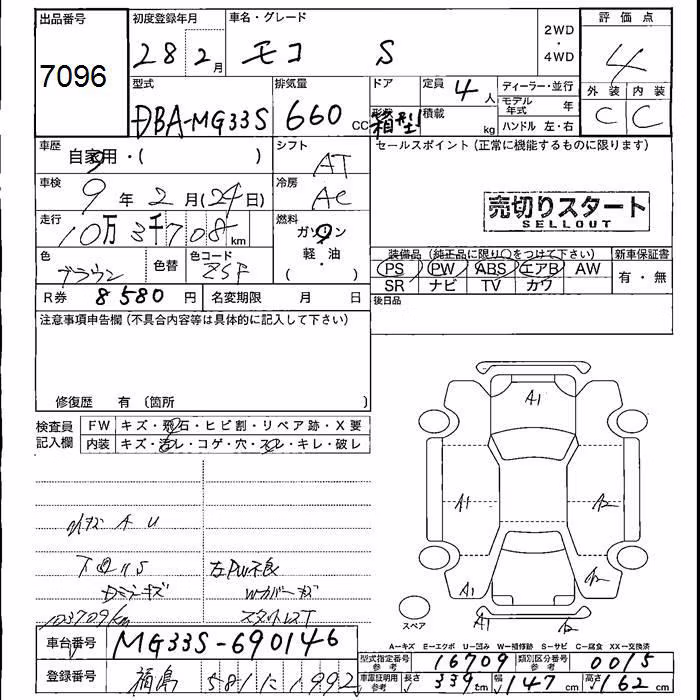 出品番号
7096
初度登録年月
28 2月
車名・グレード
モコ S
2WD
・
4WD
評価点
4
外装 内装
C C
型式
DBA-MG33S
排気量
660 cc
ドア
形状
箱型
定員
4人
積載
kg
ディーラー・並行
モデル年式 年
ハンドル 左・右
車歴
自家用・( )
シフト
AT
セールスポイント(正常に機能するものに限ります)
車検
9年 2月(24日)
冷房
AC
売切りスタート
SELLOUT
走行
10万 3千708km
燃料
ガソリン
軽・油
( )
色
ブラウン
色替
色コード
装備品(純正品に限り〇をつけて下さい)
新車保証書
PS PW ABS エアB AW
有・無
SR ナビ TV カワ
R券 8580円
名変期限 月 日
後日品
注意事項申告欄(不具合内容等は具体的に記入して下さい)
修復歴 有 〔箇所 〕
検査員
記入欄
FW キズ・飛石・ヒビ割・リペア跡・X要
内装 キズ・汚レ・コゲ・穴・スレ・キレ・破レ
A U
左PW不良
ドアミラーキズ
Wカバーキズ
103709km
A1
A1
A2
A1
A2
A1
A2
スペア
A-キズ E-エクボ U-凹み W-補修跡 S-サビ C-腐食 XX-交換済
車台番号
MG33S-690146
登録番号
福島 581 に 1992
型式指定番号
参考
16709
類別区分番号
参考
0015
車庫証明用
参考
長さ 339cm
幅 147cm
高さ 162cm